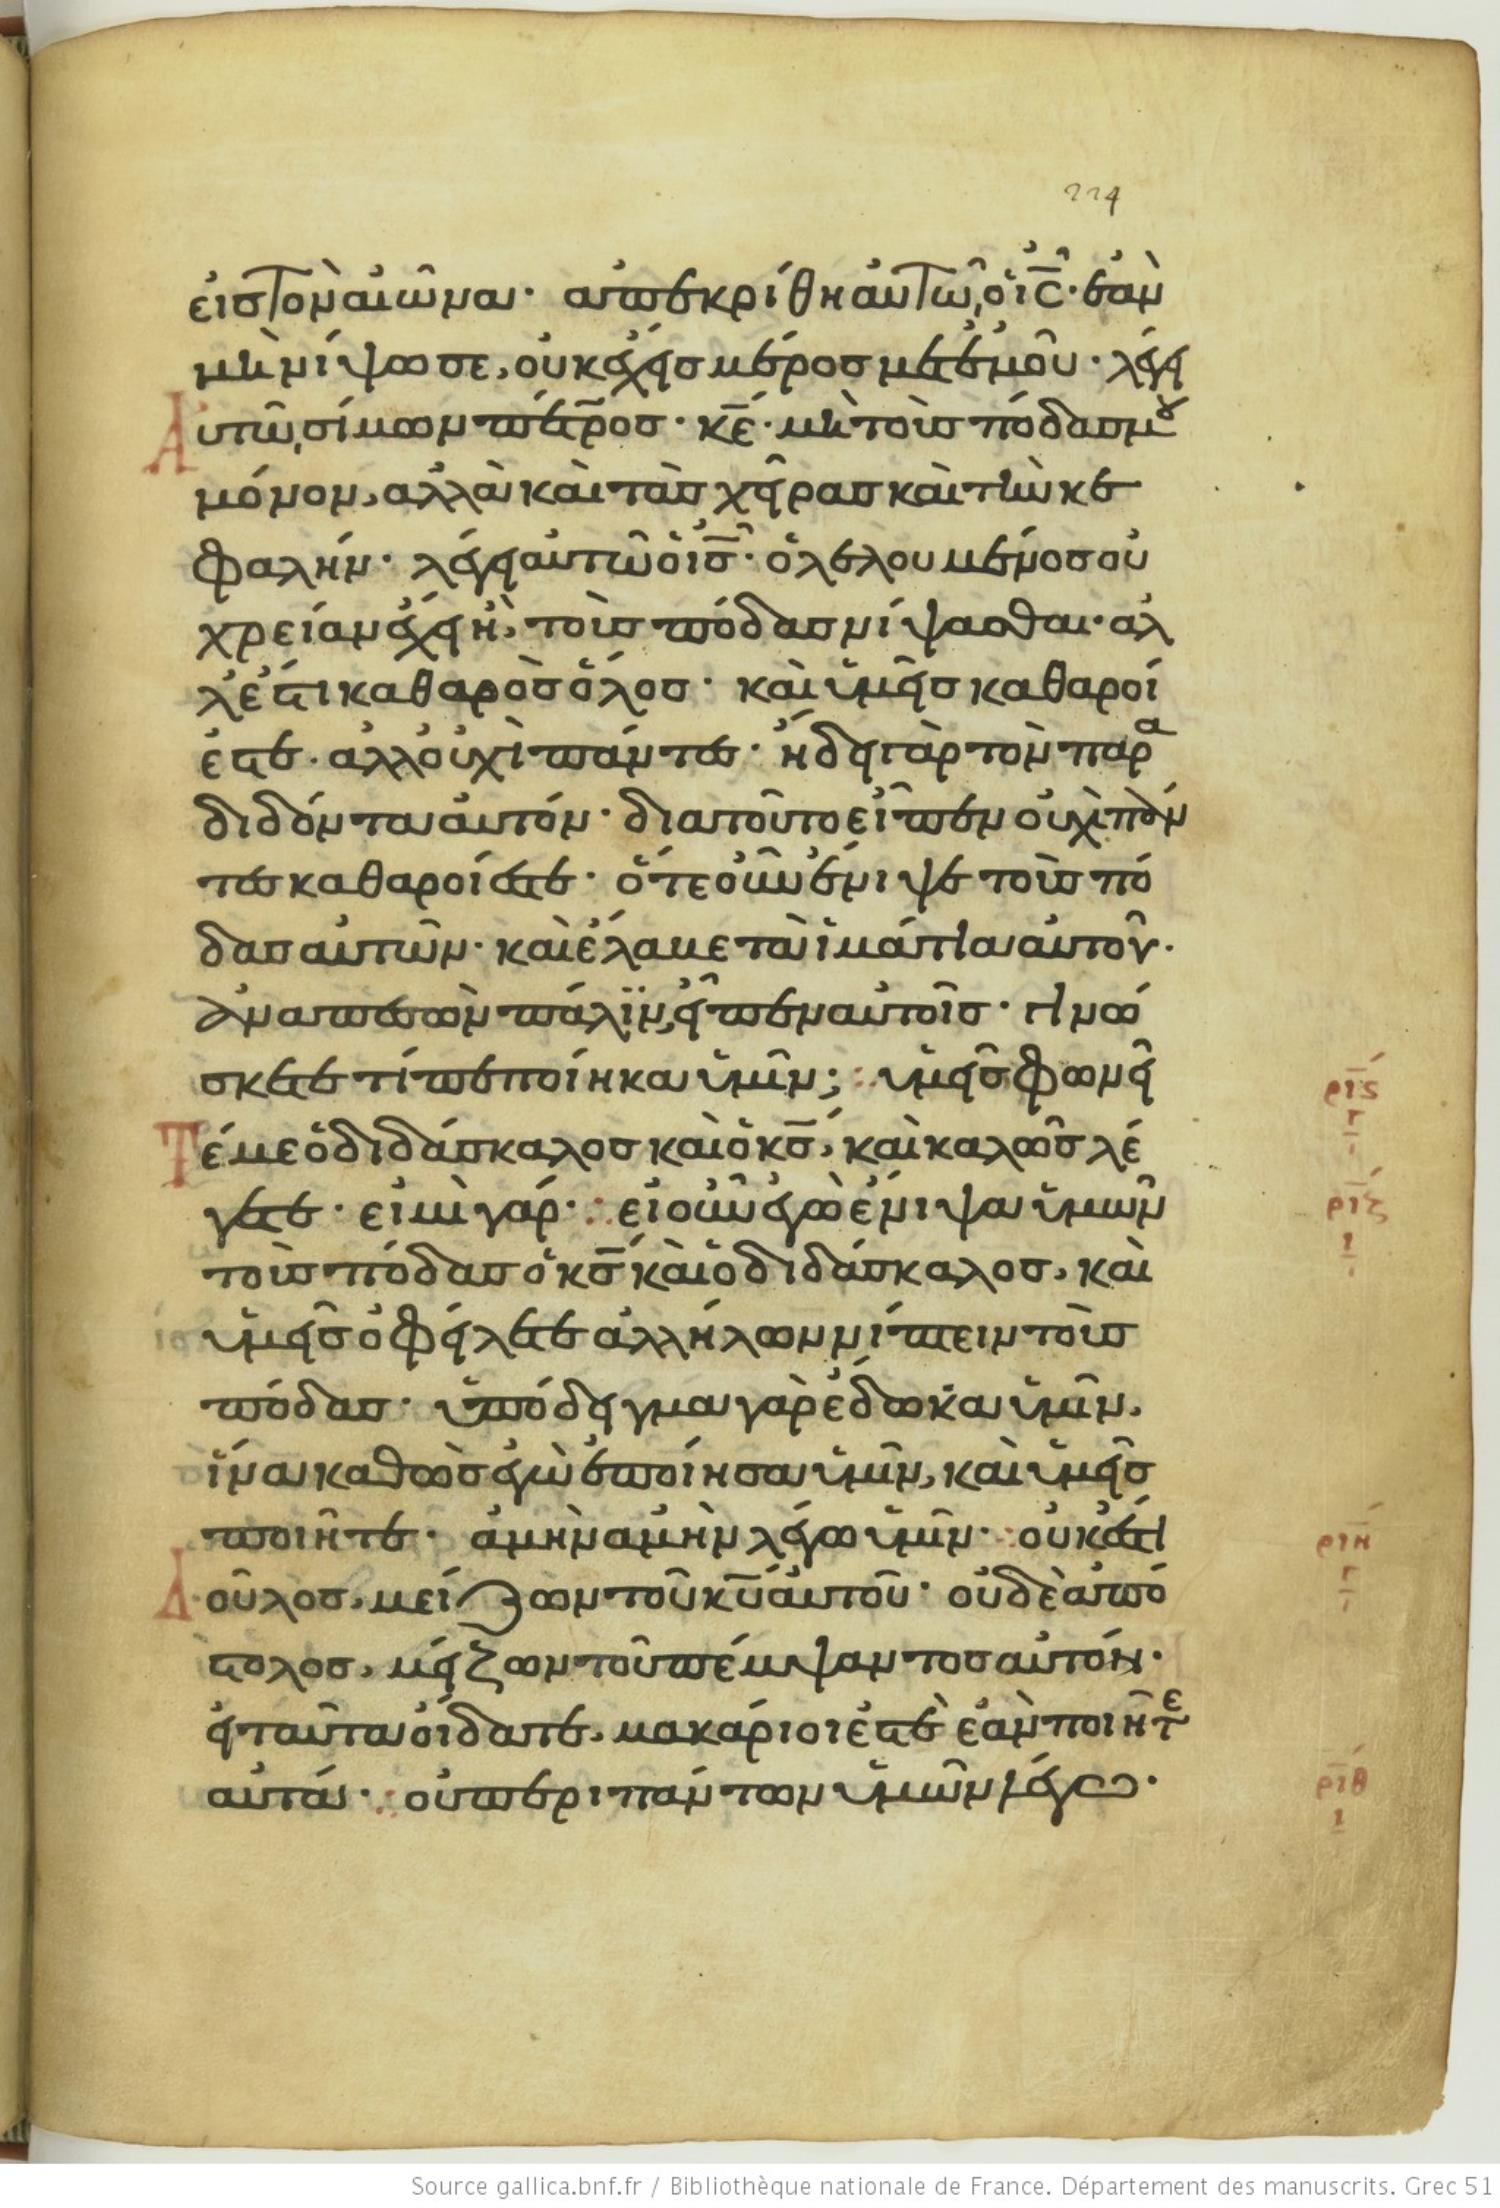 224
εἰς τὸν αἰῶνα· ἀπεκρίθη αὐτῶ, ὁ ἰ̅ς̅· ἐὰν
μὴ νίψω σε, οὐκ ἔχεις μέρος μετ ἐμοῦ· λέγει
Αὐτῶ, σίμων πέτρος· κ̅ε̅· μὴ τοὺς πόδας μου
μόνον, ἀλλὰ καὶ τὰς χεῖρας καὶ τὴν κε
φαλήν· λέγει αὐτῶ ὁ ἰ̅ς̅· ὁ λελουμένος οὐ
χρείαν ἔχει ἢ, τοὺς πόδας νίψασθαι· ἀλ
λ' ἔστι καθαρὸς ὅλος· καὶ ὑμεῖς καθαροί
ἐστε· ἀλλ' οὐχὶ πάντες· ἤδει γὰρ τὸν παρα
διδόντα αὐτόν· διατοῦτο εἶπεν οὐχὶ πάν
τες καθαροί ἐστε· ὅτε οὖν ἔνιψε τοὺς πό
δας αὐτῶν· καὶ ἔλαβε τὰ ἱμάτια αὐτοῦ·
ἀναπεσὼν πάλϊν, εἶπεν αὐτοῖς· γινώ
σκετε τί πεποίηκα ὑμῖν; ὑμεῖς φωνεῖ
Τέ με ὁ διδάσκαλος καὶ ὁ κ̅ς̅, καὶ καλῶς λέ
γετε· εἰμὶ γάρ· εἰ οὖν ἐγὼ ἔνιψα ὑμῶν
τοὺς πόδας ὁ κ̅ς̅ καὶ ὁ διδάσκαλος, καὶ
ὑμεῖς ὀφείλετε ἀλλήλων νίπτειν τοὺς
πόδας· ὑπόδειγμα γὰρ ἔδωκα ὑμῖν,
ἵνα καθὼς ἐγὼ ἐποίησα ὑμῖν, καὶ ὑμεῖς
ποιῆτε· ἀμὴν ἀμὴν λέγω ὑμῖν· οὐκ ἔστι
Δοῦλος, μείζων τοῦ κ̅υ̅ αὐτοῦ· οὐδὲ ἀπό
στολος, μείζων τοῦ πέμψαντος αὐτόν·
εἰ ταῦτα οἴδατε, μακάριοί ἐστε ἐὰν ποιῆτε
αὐτά· οὐ περι πάντων ὑμῶν λέγω·
ριϛ
γ
ριζ
ι
ριη
γ
ριθ
ι
Source gallica.bnf.fr / Bibliothèque nationale de France. Département des manuscrits. Grec 51